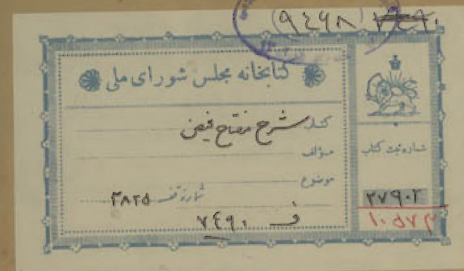 (۹۴۶۸) ۷۴۹۰
کتابخانه مجلس شورای ملی
کتاب شرح مفتاح فیض
مؤلف
موضوع
شماره قفسه ۳۸۲۵
ف ۷۴۹۰
شماره ثبت کتاب
۲۷۹۰۲
۱۰۵۷۳